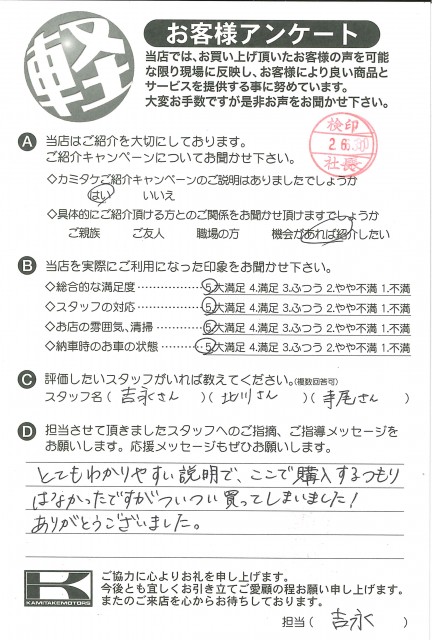 軽
お客様アンケート
当店では、お買い上げ頂いたお客様の声を可能
な限り現場に反映し、お客様により良い商品と
サービスを提供する事に努めています。
大変お手数ですが是非お声をお聞かせ下さい。
検印
2.6.30
社長
A 当店はご紹介を大切にしております。
ご紹介キャンペーンについてお聞かせ下さい。
◇カミタケご紹介キャンペーンのご説明はありましたでしょうか
はい いいえ
◇具体的にご紹介頂ける方とのご関係をお聞かせ頂けますでしょうか
ご親族 ご友人 職場の方 機会があれば紹介したい
B 当店を実際にご利用になった印象をお聞かせ下さい。
◇総合的な満足度……………5.大満足 4.満足 3.ふつう 2.やや不満 1.不満
◇スタッフの対応……………5.大満足 4.満足 3.ふつう 2.やや不満 1.不満
◇お店の雰囲気、清掃…………5.大満足 4.満足 3.ふつう 2.やや不満 1.不満
◇納車時のお車の状態…………5.大満足 4.満足 3.ふつう 2.やや不満 1.不満
C 評価したいスタッフがいれば教えてください。(複数回答可)
スタッフ名(吉永さん)(北川さん)(寺尾さん)
D 担当させて頂きましたスタッフへのご指摘、ご指導メッセージを
お願いします。応援メッセージもぜひお願いします。
とてもわかりやすい説明で、ここで購入するつもり
はなかったですがついつい買ってしまいました!
ありがとうございました。
K
KAMITAKEMOTORS
ご協力に心よりお礼を申し上げます。
今後とも宜しくお引き立てご愛顧の程お願い申し上げます。
またのご来店を心からお待ちしております。
担当(吉永)